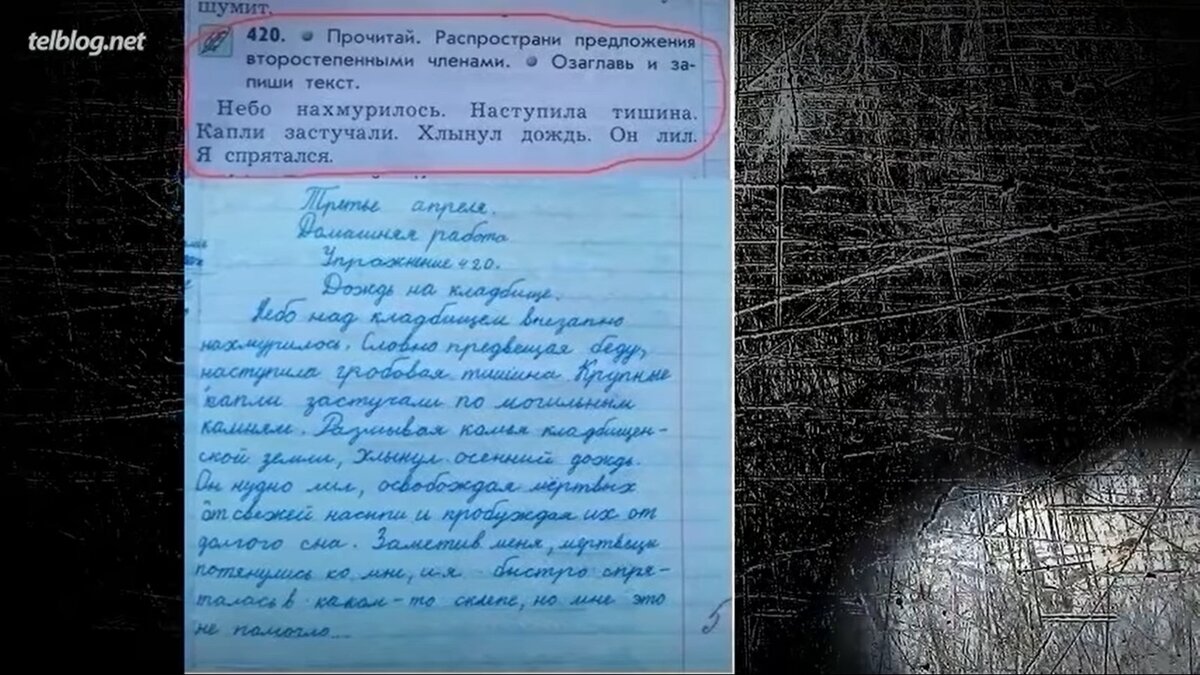 telblog.net
шумит.
420. • Прочитай. Распространи предложения
второстепенными членами. • Озаглавь и за-
пиши текст.
Небо нахмурилось. Наступила тишина.
Капли застучали. Хлынул дождь. Он лил.
Я спрятался.
Третье апреля.
Домашняя работа
Упражнение 420.
Дождь на кладбище.
Небо над кладбищем внезапно
нахмурилось. Словно предвещая беду,
наступила гробовая тишина Крупные
капли застучали по могильным
камням. Размывая комья кладбищен-
ской земли, хлынул осенний дождь.
Он нудно лил, освобождая мёртвых
от свежей насыпи и пробуждая их от
долгого сна. Заметив меня, мертвецы
потянулись ко мне, и я быстро спря-
талась в каком-то склепе, но мне это
не помогло...
5